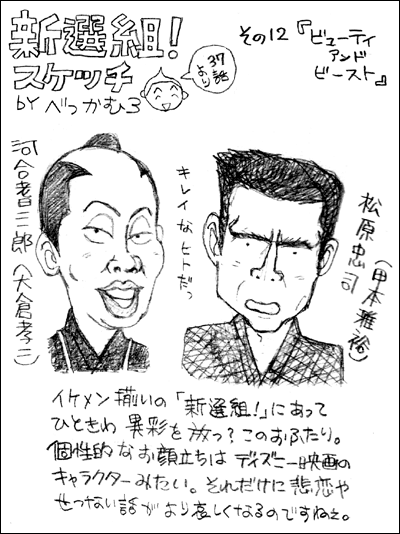 新選組!
スケッチ
BY べっかむ3
37話
より
その12『ビューティ
アンド
ビースト』
河合耆三郎(大倉孝二)
キレイなヒトだっ
松原忠司
(甲本雅裕)
イケメン揃いの「新選組!」にあって
ひときわ異彩を放っ?このおふたり。
個性的なお顔立ちはディズニー映画の
キャラクターみたい。それだけに悲恋や
せつない話がより哀しくなるのですねぇ。